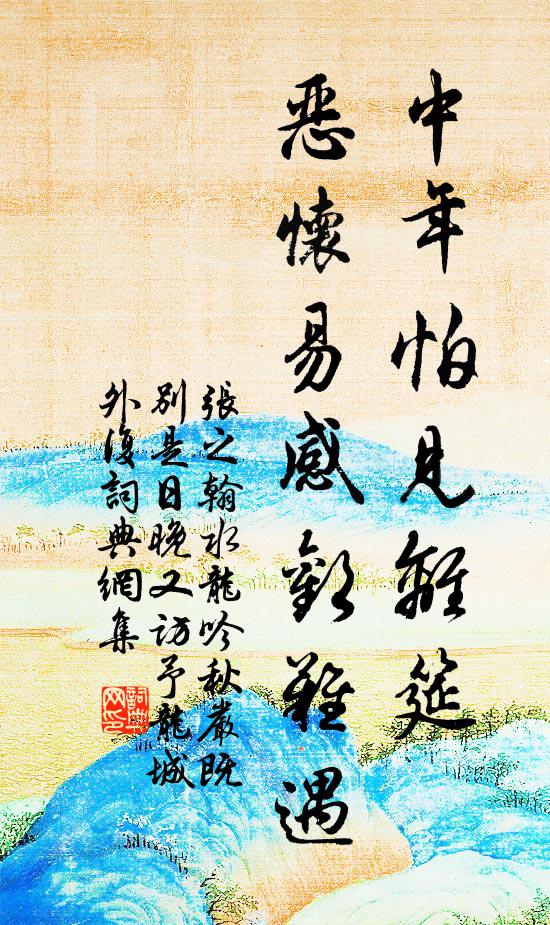 中年怕見離筵
惡懷易感歡難遇
張之翰水龍吟秋巖既
別是日晚又訪予龍城
外復詞典網集
詞典
网印